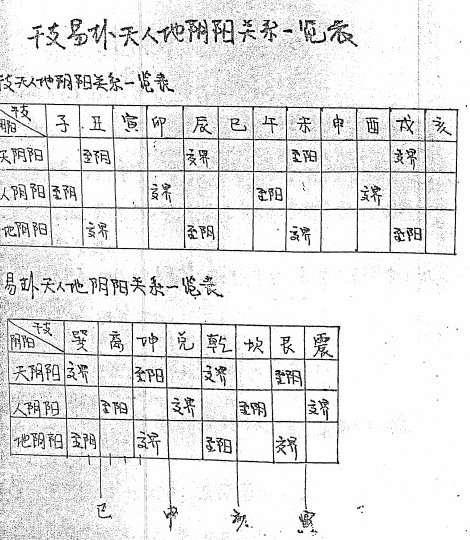 干支易卦天人地阴阳关系一览表
干支天人地阴阳关系一览表
干支 阴阳 子 丑 寅 卯 辰 巳 午 未 申 酉 戌 亥
天阴阳 至阴 交界 至阳 交界
人阴阳 至阴 交界 至阳 交界
地阴阳 交界 至阴 交界 至阳
易卦天人地阴阳关系一览表
干支 阴阳 巽 离 坤 兑 乾 坎 艮 震
天阴阳 交界 至阳 交界 至阴
人阴阳 至阳 交界 至阴 交界
地阴阳 至阴 交界 至阳 交界
巳 申 亥 寅